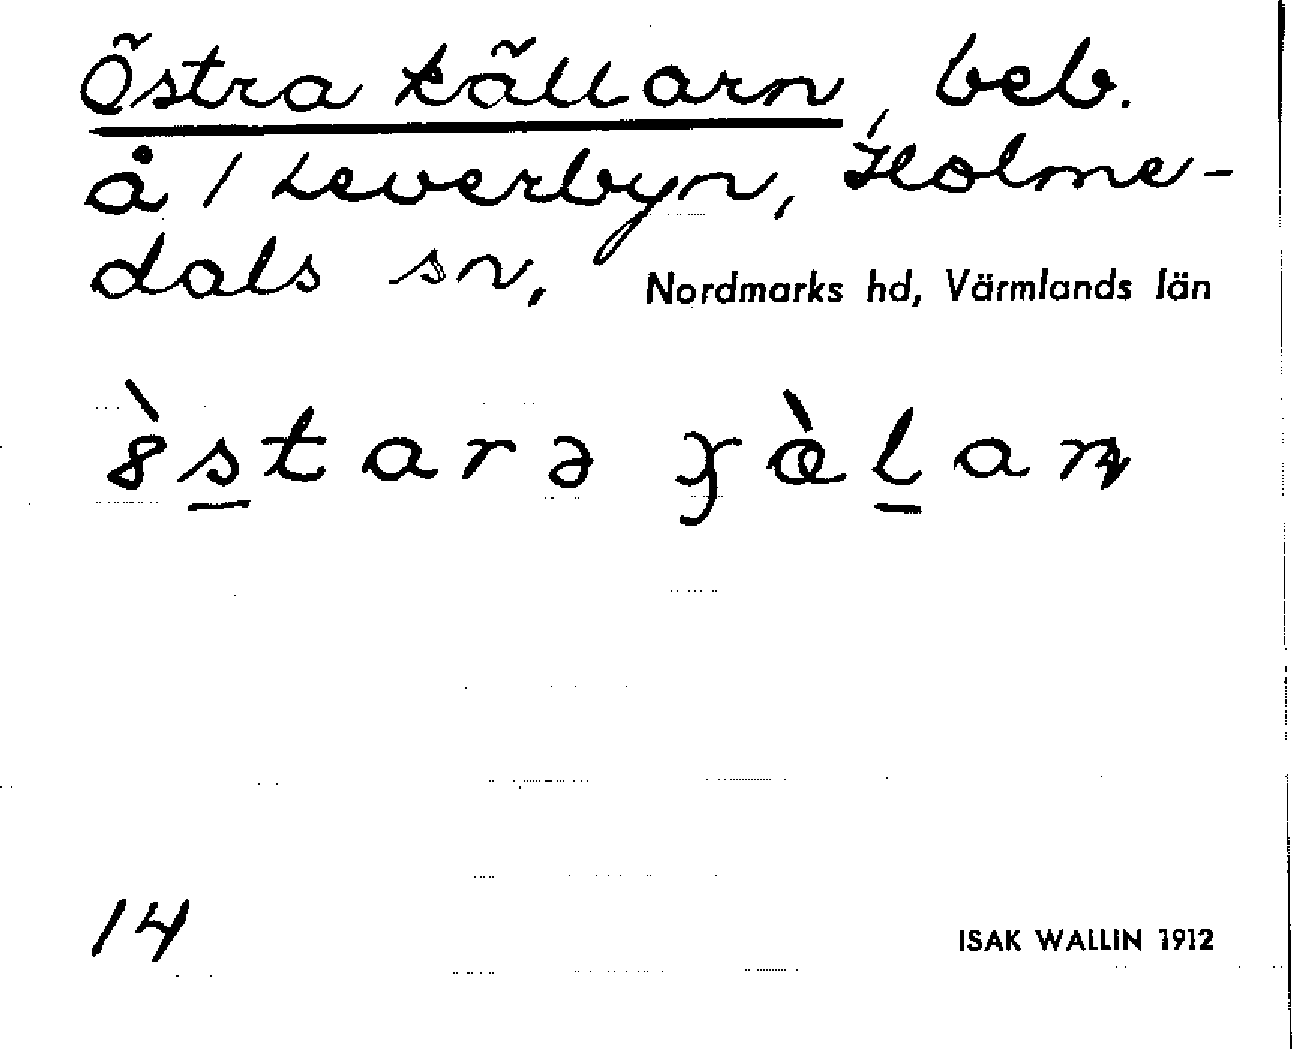 Östra källarn, beb.
å 1 Leverbyn, Holme-
dals sn, Nordmarks hd, Värmlands län
ò̈s̲tarə χæ̀l̲an
14
ISAK WALLIN 1912